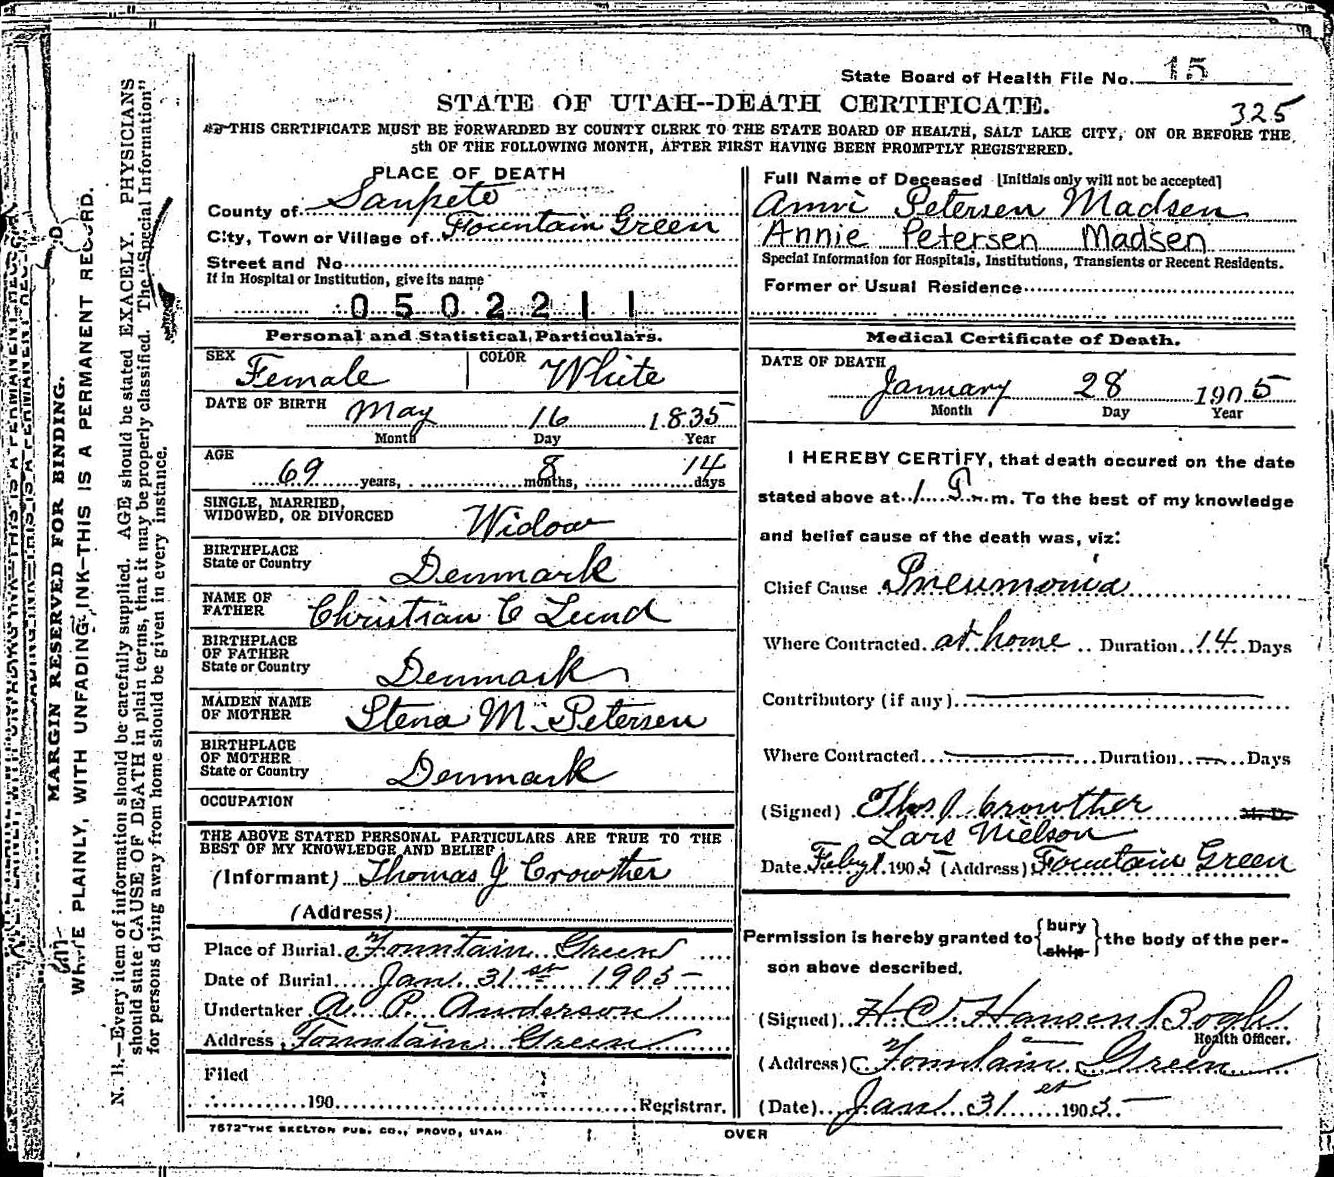 State Board of Health File No. 15
STATE OF UTAH--DEATH CERTIFICATE.
325
THIS CERTIFICATE MUST BE FORWARDED BY COUNTY CLERK TO THE STATE BOARD OF HEALTH, SALT LAKE CITY, ON OR BEFORE THE
5th OF THE FOLLOWING MONTH, AFTER FIRST HAVING BEEN PROMPTLY REGISTERED.
PLACE OF DEATH
County of Sanpete
City, Town or Village of Fountain Green
Street and No
If in Hospital or Institution, give its name
0502211
Personal and Statistical Particulars.
SEX Female COLOR White
DATE OF BIRTH May 16 1835
Month Day Year
AGE 69 years, 8 months, 14 days
SINGLE, MARRIED,
WIDOWED, OR DIVORCED Widow
BIRTHPLACE
State or Country Denmark
NAME OF
FATHER Christian C Lund
BIRTHPLACE
OF FATHER
State or Country Denmark
MAIDEN NAME
OF MOTHER Stena M. Petersen
BIRTHPLACE
OF MOTHER
State or Country Denmark
OCCUPATION
THE ABOVE STATED PERSONAL PARTICULARS ARE TRUE TO THE
BEST OF MY KNOWLEDGE AND BELIEF
(Informant) Thomas J Crowther
(Address)
Place of Burial Fountain Green
Date of Burial Jan 31st 1905
Undertaker A. P. Anderson
Address Fountain Green
Filed
190 Registrar.
7672-THE SKELTON PUB. CO., PROVO, UTAH
Full Name of Deceased [Initials only will not be accepted]
Petersen Madsen
Annie Petersen Madsen
Special Information for Hospitals, Institutions, Transients or Recent Residents.
Former or Usual Residence
Medical Certificate of Death.
DATE OF DEATH
January 28 1905
Month Day Year
I HEREBY CERTIFY, that death occured on the date
stated above at 1 P. m. To the best of my knowledge
and belief cause of the death was, viz:
Chief Cause Pneumonia
Where Contracted at home Duration 14 Days
Contributory (if any)
Where Contracted Duration Days
(Signed) Thos J Crowther M. D.
Lars Nielson
Date Feby 1 1905 (Address) Fountain Green
Permission is hereby granted to { bury
ship } the body of the per-
son above described.
(Signed) H C Hansen Bogh
Health Officer.
(Address) Fountain Green
(Date) Jan 31st 1905
OVER
MARGIN RESERVED FOR BINDING.
WRITE PLAINLY, WITH UNFADING INK—THIS IS A PERMANENT RECORD.
N. B.—Every item of information should be carefully supplied. AGE should be stated EXACELY. PHYSICIANS
should state CAUSE OF DEATH in plain terms, that it may be properly classified. The "Special Information"
for persons dying away from home should be given in every instance.